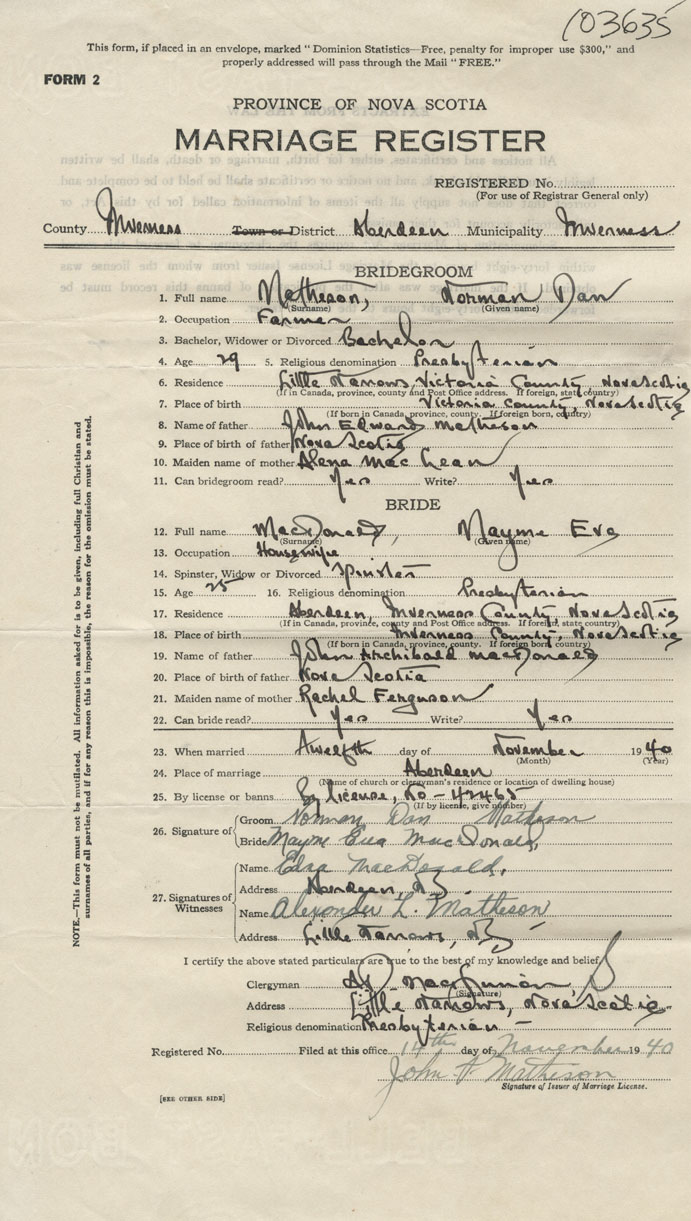 103635
This form, if placed in an envelope, marked "Dominion Statistics—Free, penalty for improper use $300," and
properly addressed will pass through the Mail "FREE."
FORM 2
PROVINCE OF NOVA SCOTIA
MARRIAGE REGISTER
REGISTERED No.
(For use of Registrar General only)
County Inverness Town or District Aberdeen Municipality Inverness
BRIDEGROOM
1. Full name Matheson, Norman Dan
(Surname) (Given name)
2. Occupation Farmer
3. Bachelor, Widower or Divorced Bachelor
4. Age 29 5. Religious denomination Presbyterian
6. Residence Little Narrows, Victoria County, Nova Scotia
(If in Canada, province, county and Post Office address. If foreign, state country)
7. Place of birth Victoria County, Nova Scotia
(If born in Canada, province, county. If foreign born, country)
8. Name of father John Edward Matheson
9. Place of birth of father Nova Scotia
10. Maiden name of mother Alena MacLean
11. Can bridegroom read? Yes Write? Yes
BRIDE
12. Full name MacDonald, Mayme Eva
(Surname) (Given name)
13. Occupation Housewife
14. Spinster, Widow or Divorced Spinster
15. Age 25 16. Religious denomination Presbyterian
17. Residence Aberdeen, Inverness County, Nova Scotia
(If in Canada, province, county and Post Office address. If foreign, state country)
18. Place of birth Inverness County, Nova Scotia
(If born in Canada, province, county. If foreign born country)
19. Name of father John Archibald MacDonald
20. Place of birth of father Nova Scotia
21. Maiden name of mother Rachel Ferguson
22. Can bride read? Yes Write? Yes
23. When married Twelfth day of November 1940
(Month) (Year)
24. Place of marriage Aberdeen
(Name of church or clergyman's residence or location of dwelling house)
25. By license or banns By license, No - 42465
(If by license, give number)
26. Signature of
Groom Norman Dan Matheson
Bride Mayme Eva MacDonald,
27. Signatures of Witnesses
Name Edna MacDonald,
Address Aberdeen, NS
Name Alexander L. Matheson
Address Little Narrows, NS
I certify the above stated particulars are true to the best of my knowledge and belief.
Clergyman
(Signature)
Address Little Narrows, Nova Scotia
Religious denomination Presbyterian
Registered No. Filed at this office 14th day of November 1940
John Matheson
Signature of Issuer of Marriage License.
[SEE OTHER SIDE]
NOTE.—This form must not be mutilated. All information asked for is to be given, including full Christian and
surnames of all parties, and if for any reason this is impossible, the reason for the omission must be stated.